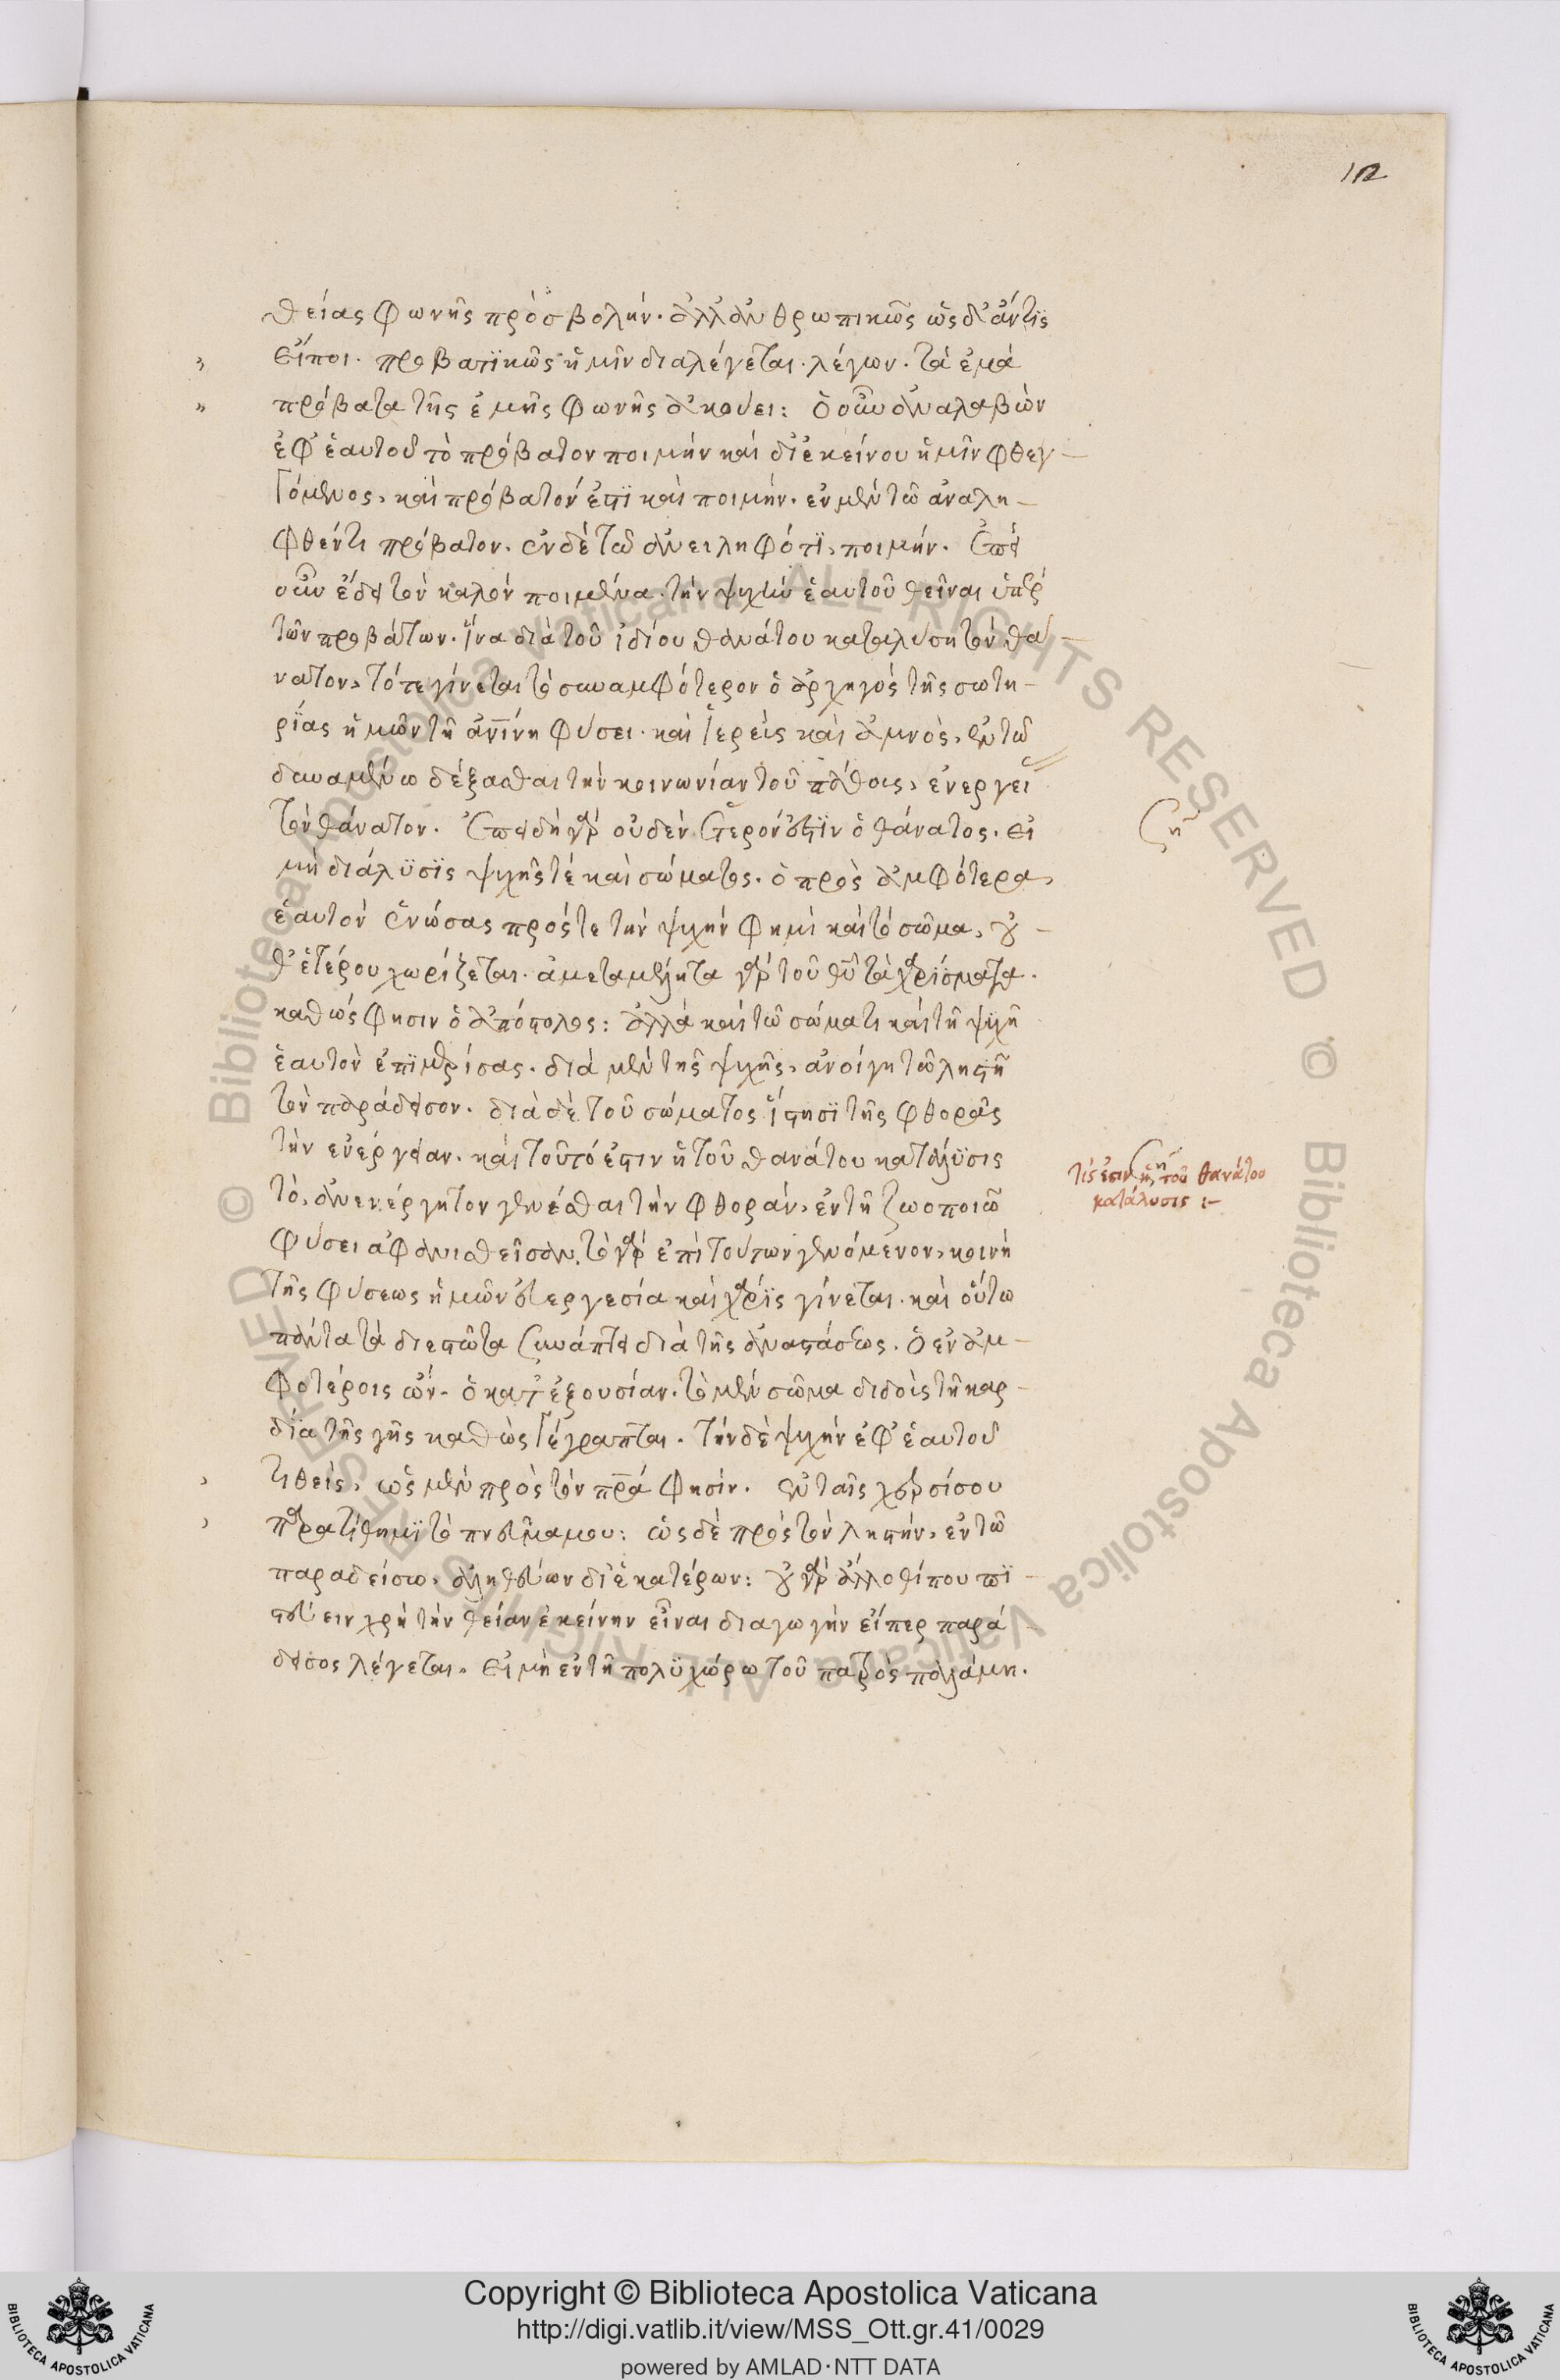 12
θείας φωνῆς προσβολήν. ἀλλ' ἀνθρωπικῶς ὡς δ' ἄν τις
εἴποι. προβατικῶς ἡμῖν διαλέγεται. λέγων. τὰ ἐμὰ
πρόβατα τῆς ἐμῆς φωνῆς ἀκούει: ὁ οὖν ἀναλαβὼν
ἐφ' ἑαυτοῦ τὸ πρόβατον ποιμὴν καὶ δι' ἐκείνου ἡμῖν φθεγ-
γόμενος, καὶ πρόβατόν ἐστι καὶ ποιμήν. ἐν μὲν τῶ ἀναλη-
φθέντι πρόβατον. ἐν δὲ τῶ ἀνειληφότι, ποιμήν. Ἐπεὶ
οὖν ἔδει τὸν καλὸν ποιμένα τὴν ψυχὴν ἑαυτοῦ θεῖναι ὑπὲρ
τῶν προβάτων. ἵνα διὰ τοῦ ἰδίου θανάτου καταλύση τὸν θά-
νατον, τότε γίνεται τὸ συναμφότερον ὁ ἀρχηγὸς τῆς σωτη-
ρίας ἡμῶν τῆ ἀνίνη φύσει. καὶ ἱερεὺς καὶ ἀμνὸς, ἐν τῶ
δυναμένω δέξασθαι τὴν κοινωνίαν τοῦ πάθους, ἐνεργεῖ
τὸν θάνατον. Ἐπειδὴ γὰρ οὐδὲν ἕτερόν ἐστιν ὁ θάνατος. εἰ
μὴ διάλυσις ψυχῆς τὲ καὶ σώματος. ὁ πρὸς ἀμφότερα,
ἑαυτὸν ἑνώσας πρός τε τὴν ψυχήν φημι καὶ τὸ σῶμα, οὐ-
θ' ἑτέρου χωρίζεται. ἀμεταμέλητα γὰρ τοῦ θυ τὰ χαρίσματα.
καθώς φησιν ὁ ἀπόστολος: ἀλλὰ καὶ τῶ σώματι καὶ τῆ ψυχῆ
ἑαυτὸν ἐπιμερίσας. διὰ μὲν τῆς ψυχῆς, ἀνοίγη τῶ ληστῆ
τὸν παράδεισον. διὰ δὲ τοῦ σώματος ἵστησι τῆς φθορᾶς
τὴν ἐνέργειαν. καὶ τοῦτό ἐστιν ἡ τοῦ θανάτου κατάλυσις
τὸ, ἀνενέργητον γενέσθαι τὴν φθοράν, ἐν τῆ ζωοποιῶ
φύσει ἀφανισθεῖσαν. τὸ γὰρ ἐπὶ τούτων γενόμενον, κοινὴ
τῆς φύσεως ἡμῶν εὐεργεσία καὶ χάρις γίνεται. καὶ οὕτω
πάντα τὰ διεστῶτα συνάπτει διὰ τῆς ἀναστάσεως. ὁ ἐν ἀμ-
φοτέροις ὤν. ὁ κατ' ἐξουσίαν. τὸ μὲν σῶμα διδοὺς τῆ καρ-
δία τῆς γῆς καθὼς γέγραπται. τὴν δὲ ψυχὴν ἐφ' ἑαυτοῦ
τιθεὶς, ὡς μὲν πρὸς τὸν πρα φησίν. ἐν ταῖς χερσί σου
παρατίθημι τὸ πνεῦμα μου: ὡς δὲ πρὸς τὸν ληστήν, ἐν τῶ
παραδείσω, ἀληθεύων δι' ἑκατέρων: οὐ γὰρ ἄλλοθί που πι-
στεύειν χρὴ τὴν θείαν ἐκείνην εἶναι διαγωγὴν εἴπερ παρά
δεισος λέγεται, εἰ μὴ ἐν τῆ πολυχώρω τοῦ πατρὸς παλάμη.
ση
τίς ἐστιν ἡ τοῦ θανάτου
κατάλυσις :-
© Biblioteca Apostolica Vaticana ALL RIGHTS RESERVED © Biblioteca Apostolica Vaticana ALL RIGHTS RESERVED
Copyright © Biblioteca Apostolica Vaticana
http://digi.vatlib.it/view/MSS_Ott.gr.41/0029
powered by AMLAD·NTT DATA
BIBLIOTECA APOSTOLICA VATICANA
BIBLIOTECA APOSTOLICA VATICANA